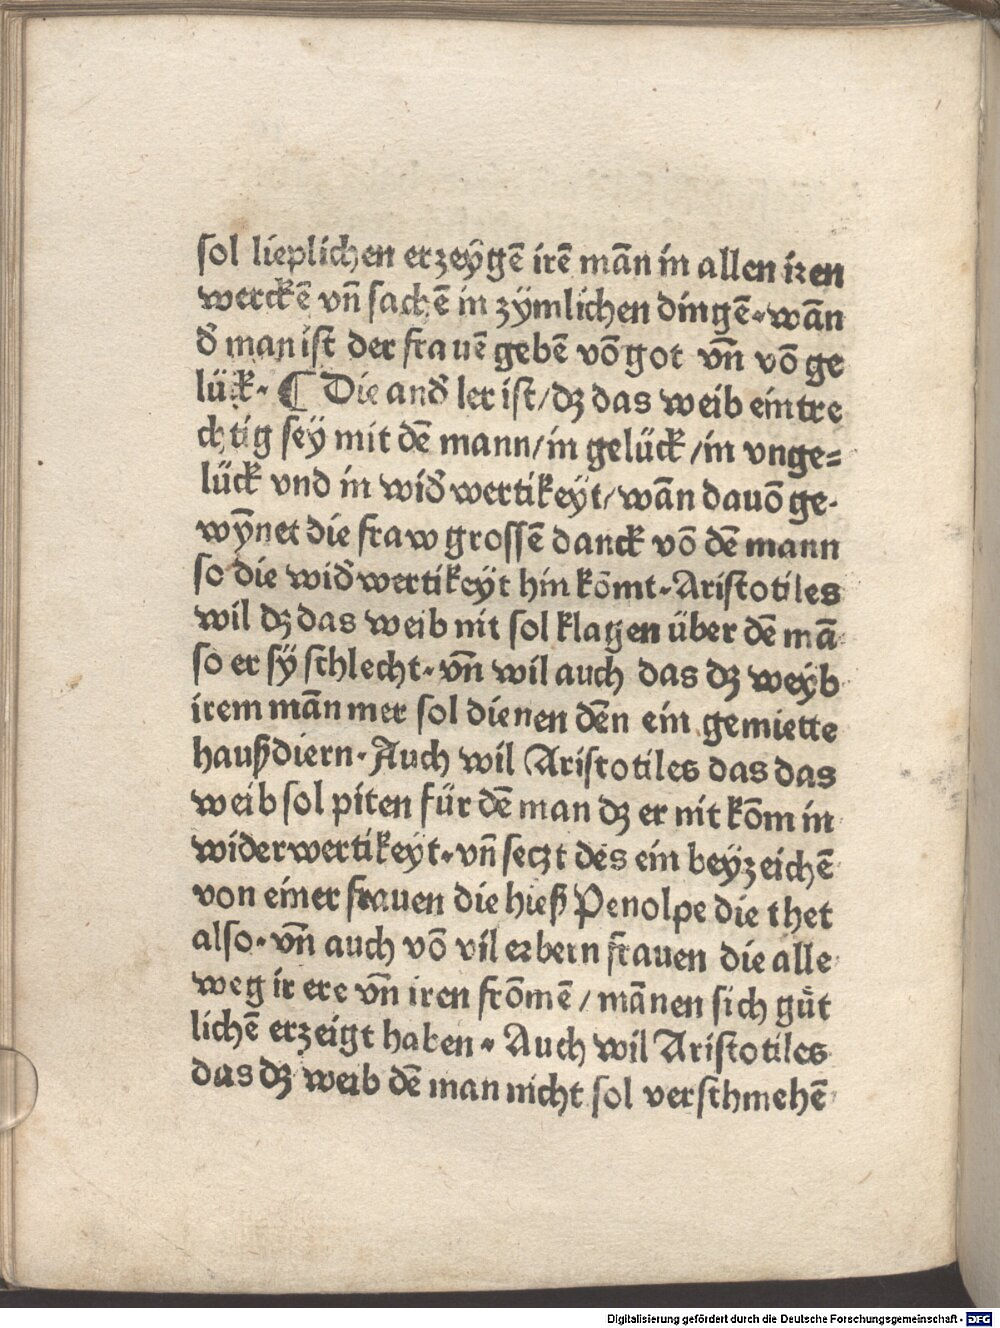 sol lieplichen erzeygē irē mān in allen iren
werckē vn̄ sachē in zÿmlichen dingē·wān
d̄ man ist der frauē gebē vō got vn̄ vō ge
lück·¶ Die and̄ ler ist/dz das weib eintre
chtig seÿ mit dē mann/in gelück/in vnge=
lück vnd in wid̄wertikeÿt/wān dauō ge-
wÿnet die fraw grossē danck vō dē mann
so die wid̄wertikeÿt hin kōmt·Aristotiles
wil dz das weib nit sol klagen über dē mā
so er sÿ schlecht·vn̄ wil auch das dz weÿb
irem mān mer sol dienen dēn ein gemiette
haußdiern·Auch wil Aristotiles das das
weib sol piten für dē man dz er nit kōm in
widerwertikeyt·vn̄ seczt des ein beÿzeichē
von einer frauen die hieß Penolpe die thet
also·vn̄ auch vō vil erbern frauen die alle
weg ir ere vn̄ iren frōmē/mānen sich guͤt
lichē erzeigt haben·Auch wil Aristotiles
das dz weib dē man nicht sol verschmehē
Digitalisierung gefördert durch die Deutsche Forschungsgemeinschaft - DFG